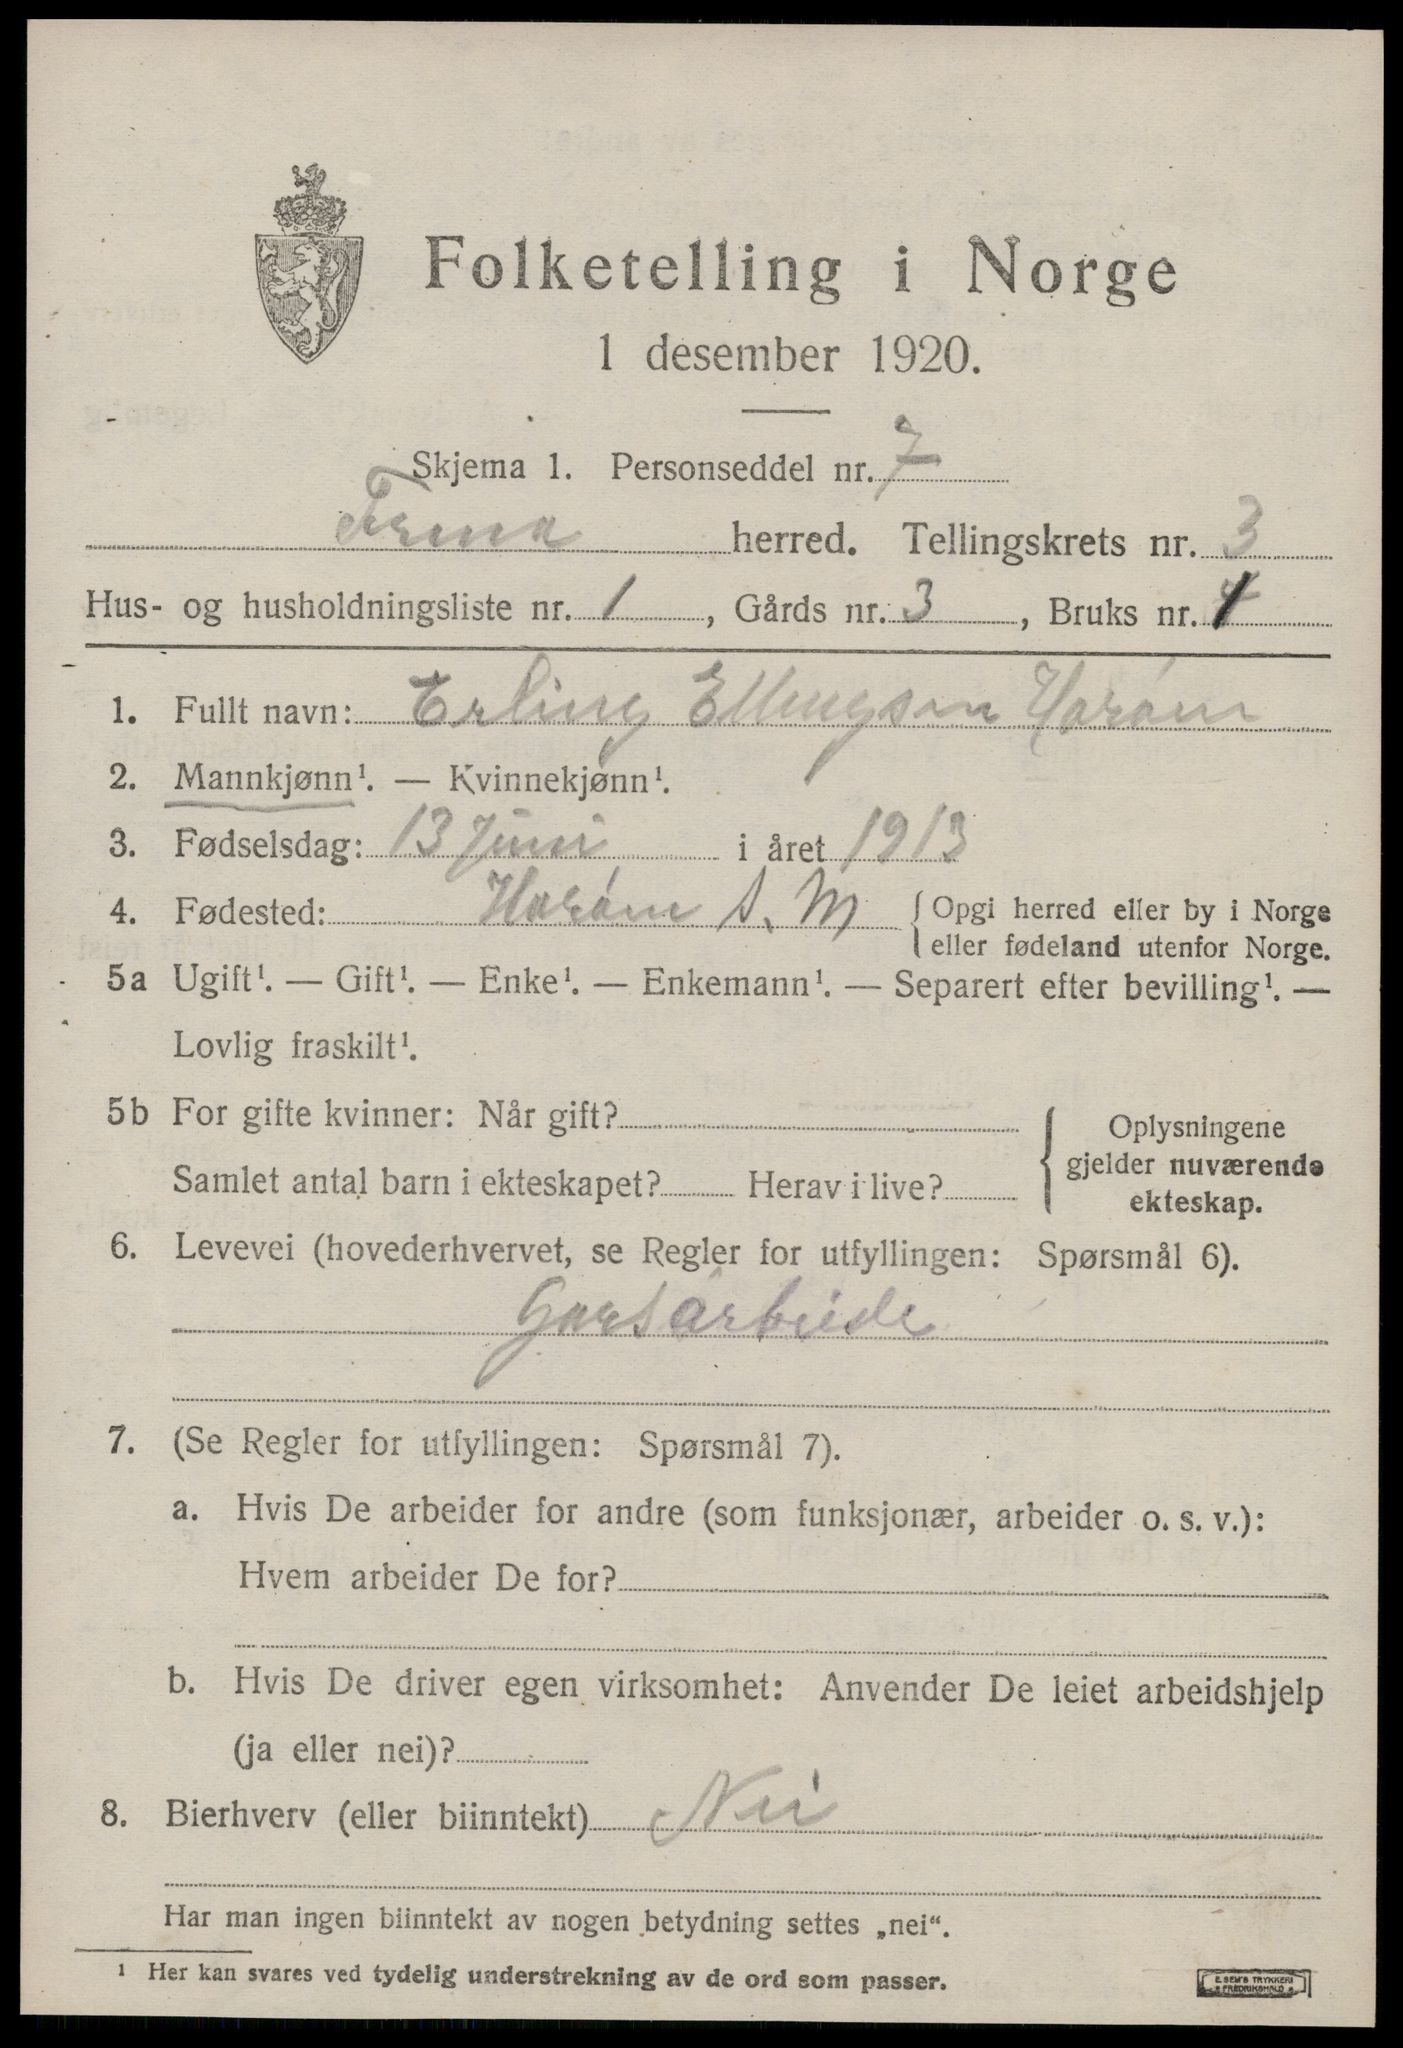 Folketelling i Norge
1 desember 1920.
Skjema 1. Personseddel nr. 7
Fræna herred. Tellingskrets nr. 3
Hus- og husholdningsliste nr. 1, Gårds nr. 3, Bruks nr. 1
1. Fullt navn: Erling Ellingsen Harøm
2. Mannkjønn¹. — Kvinnekjønn¹.
3. Fødselsdag: 13 Juni i året 1913
4. Fødested: Harøm S. M { Opgi herred eller by i Norge
eller fødeland utenfor Norge.
5a Ugift¹. — Gift¹. — Enke¹. — Enkemann¹. — Separert efter bevilling¹. —
Lovlig fraskilt¹.
5b For gifte kvinner: Når gift?
Samlet antal barn i ekteskapet? Herav i live?
{ Oplysningene
gjelder nuværende
ekteskap.
6. Levevei (hovederhvervet, se Regler for utfyllingen: Spørsmål 6).
Garsarbeide
7. (Se Regler for utfyllingen: Spørsmål 7).
a. Hvis De arbeider for andre (som funksjonær, arbeider o. s. v.):
Hvem arbeider De for?
b. Hvis De driver egen virksomhet: Anvender De leiet arbeidshjelp
(ja eller nei)?
8. Bierhverv (eller biinntekt) Nei
Har man ingen biinntekt av nogen betydning settes „nei“.
¹ Her kan svares ved tydelig understrekning av de ord som passer.
E. SEM'S TRYKKERI
FREDRIKSHALD